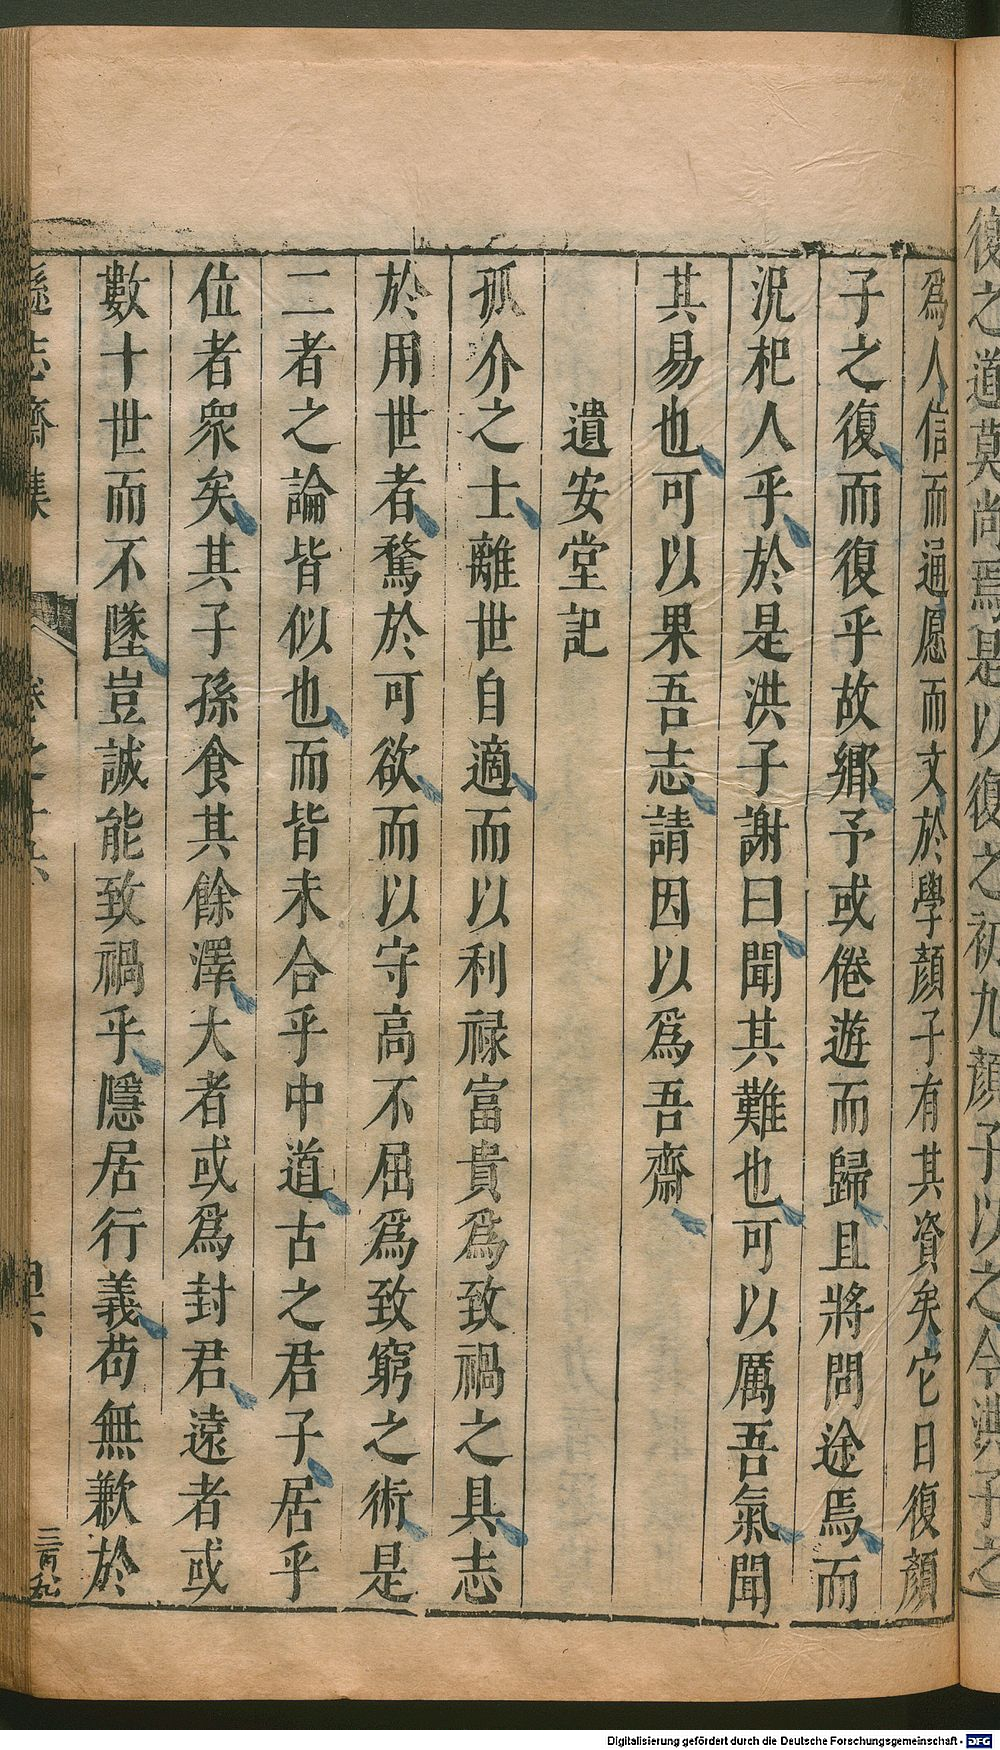 復之道莫尚焉是以復之初九顏子以之今洪子之
爲人信而通愿而文於學顏子有其資矣它日復顏
子之復而復乎故鄉予或倦遊而歸且將問途焉而
況杞人乎於是洪子謝曰聞其難也可以厲吾氣聞
其易也可以果吾志請因以爲吾齋
遺安堂記
孤介之士離世自適而以利祿富貴爲致禍之具志
於用世者騖於可欲而以守高不屈爲致窮之術是
二者之論皆似也而皆未合乎中道古之君子居乎
位者衆矣其子孫食其餘澤大者或爲封君遠者或
數十世而不墜豈誠能致禍乎隱居行義苟無歉於
遜志齋集 卷之十六 四六 三百九
Digitalisierung gefördert durch die Deutsche Forschungsgemeinschaft - DFG